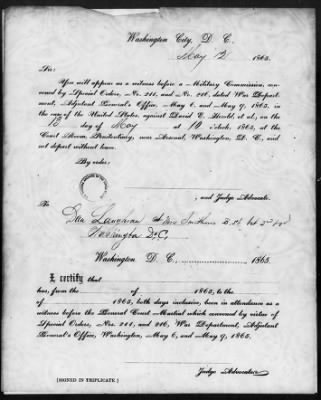 Washington City, D. C.
May 12 1865.
Sir:
You will appear as a witness before a Military Commission, con-
vened by Special Orders, No. 211, and No. 216, dated War Depart-
ment, Adjutant General's Office, May 6, and May 9, 1865, in
the case of the United States, against David E. Herold, et al., on the
day of May at 10 o'clock, 1865, at the
Court Room, Penitentiary, near Arsenal, Washington, D. C., and
not depart without leave.
By order:
, and Judge Advocate.
To Dan
Washington D.C.
Washington D. C. 1865.
I certify that
has, from the of 1865, to the
of 1865, both days inclusive, been in attendance as a
witness before the General Court Martial which convened by virtue of
Special Orders, No. 211, and 216, War Department, Adjutant
General's Office, Washington, May 6, and May 9, 1865.
Judge Advocate.
[SIGNED IN TRIPLICATE.]